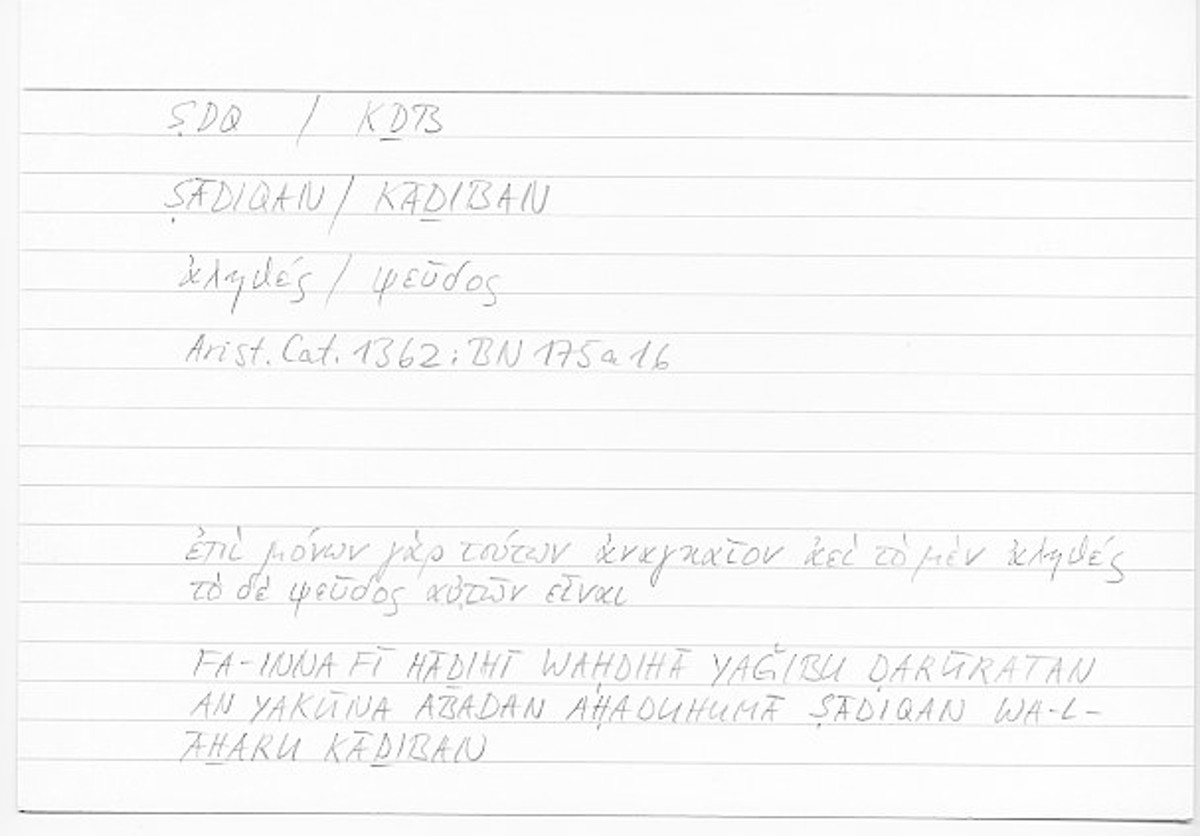 ṢDQ / KḎB
ṢĀDIQAN / KĀḎIBAN
ἀληθές / ψεῦδος
Arist. Cat. 13b2; BN 175a16
ἐπὶ μόνων γὰρ τούτων ἀναγκαῖον ἀεὶ τὸ μὲν ἀληθές
τὸ δὲ ψεῦδος αὐτῶν εἶναι
FA-INNA FĪ HĀḎIHĪ WAḤDIHĀ YAǦIBU ḌARŪRATAN
AN YAKŪNA ABADAN AḤADUHUMĀ ṢĀDIQAN WA-L-
ĀḪARU KĀḎIBAN